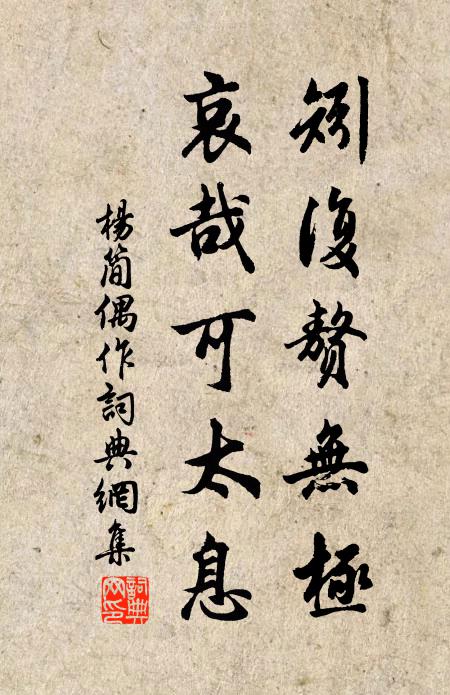 矧復贅無極
哀哉可太息
楊簡偶作詞典網集
詞典網印